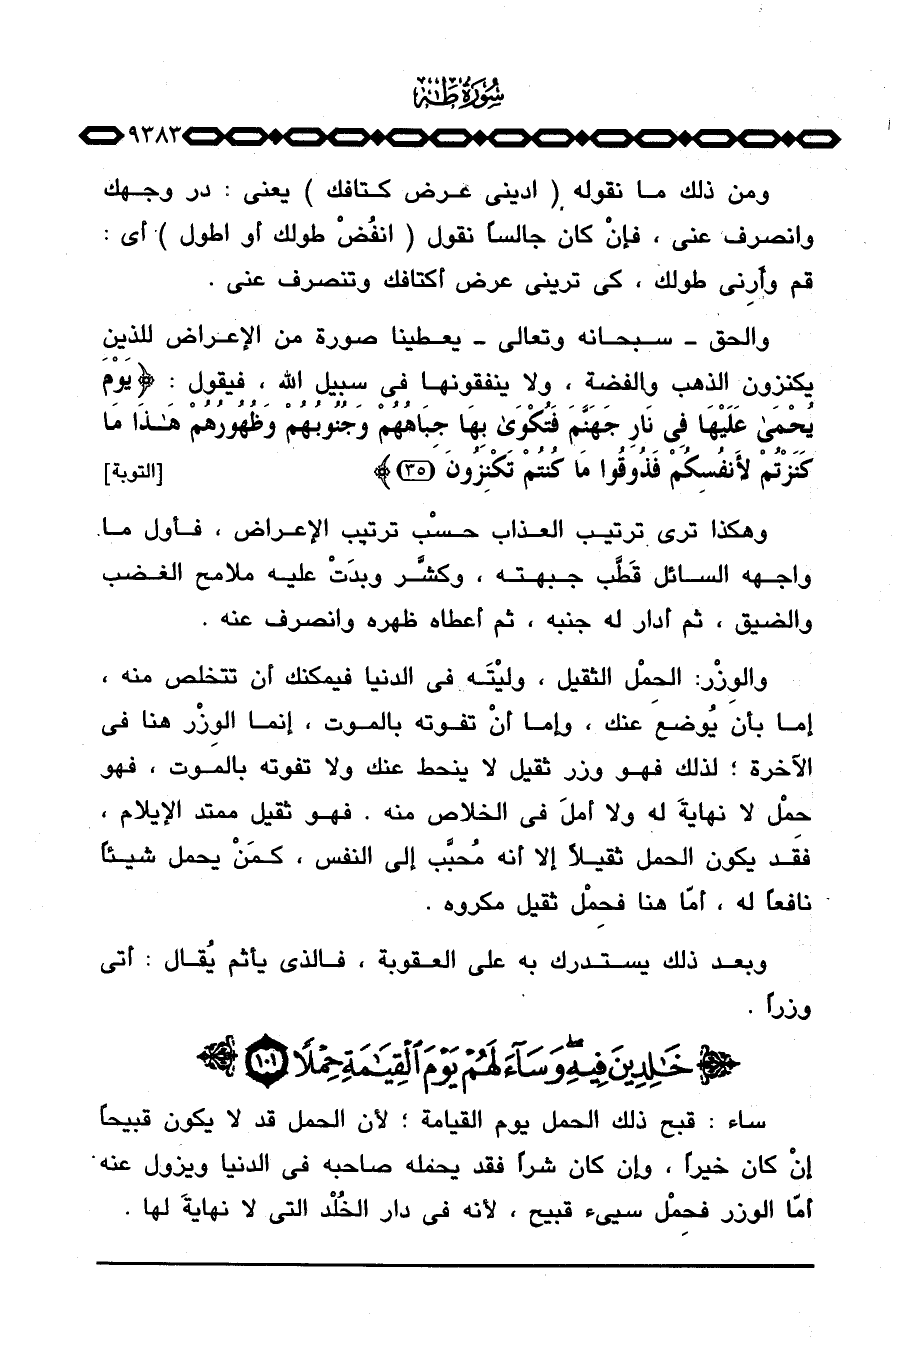 سُورَةُ طٰهٰ
٩٣٨٣
ومن ذلك ما نقوله ( اديني عرض كتافك ) يعنى : در وجهك
وانصرف عنى ، فإنْ كان جالساً نقول ( انفُضْ طولك أو اطول ) أى :
قم وأَرِنى طولك ، كى ترينى عرض أكتافك وتنصرف عنى .
والحق - سبحانه وتعالى - يعطينا صورة من الإعراض للذين
يكنزون الذهب والفضة ، ولا ينفقونها فى سبيل الله ، فيقول : ﴿ يَوْمَ
يُحْمَىٰ عَلَيْهَا فِي نَارِ جَهَنَّمَ فَتُكْوَىٰ بِهَا جِبَاهُهُمْ وَجُنُوبُهُمْ وَظُهُورُهُمْ هَـٰذَا مَا
كَنَزْتُمْ لأَنفُسِكُمْ فَذُوقُوا مَا كُنتُمْ تَكْنِزُونَ (٣٥) ﴾ [التوبة]
وهكذا ترى ترتيب العذاب حسْب ترتيب الإعراض ، فأول ما
واجهه السائل قطَّب جبهته ، وكشَّر وبدَتْ عليه ملامح الغضب
والضيق ، ثم أدار له جنبه ، ثم أعطاه ظهره وانصرف عنه .
والوِزْر: الحِمْل الثقيل ، وليْتَه فى الدنيا فيمكنك أن تتخلص منه ،
إما بأن يُوضع عنك ، وإما أنْ تفوته بالموت ، إنما الوِزْر هنا فى
الآخرة ؛ لذلك فهو وزر ثقيل لا ينحط عنك ولا تفوته بالموت ، فهو
حِمْل لا نهايةَ له ولا أملَ فى الخلاص منه . فهو ثقيل ممتد الإيلام ،
فقد يكون الحمل ثقيلاً إلا أنه مُحبَّب إلى النفس ، كمَنْ يحمل شيئاً
نافعاً له ، أمّا هنا فحِمْل ثقيل مكروه .
وبعد ذلك يستدرك به على العقوبة ، فالذى يأثم يُقال : أتى
وزراً .
خَٰلِدِينَ فِيهِ وَسَآءَ لَهُمْ يَوْمَ ٱلْقِيَٰمَةِ حِمْلًا ١٠١
ساء : قبح ذلك الحمل يوم القيامة ؛ لأن الحمل قد لا يكون قبيحاً
إنْ كان خيراً ، وإن كان شراً فقد يحمله صاحبه فى الدنيا ويزول عنه
أمّا الوزر فحِمْل سيىء قبيح ، لأنه فى دار الخُلْد التى لا نهايةَ لها .